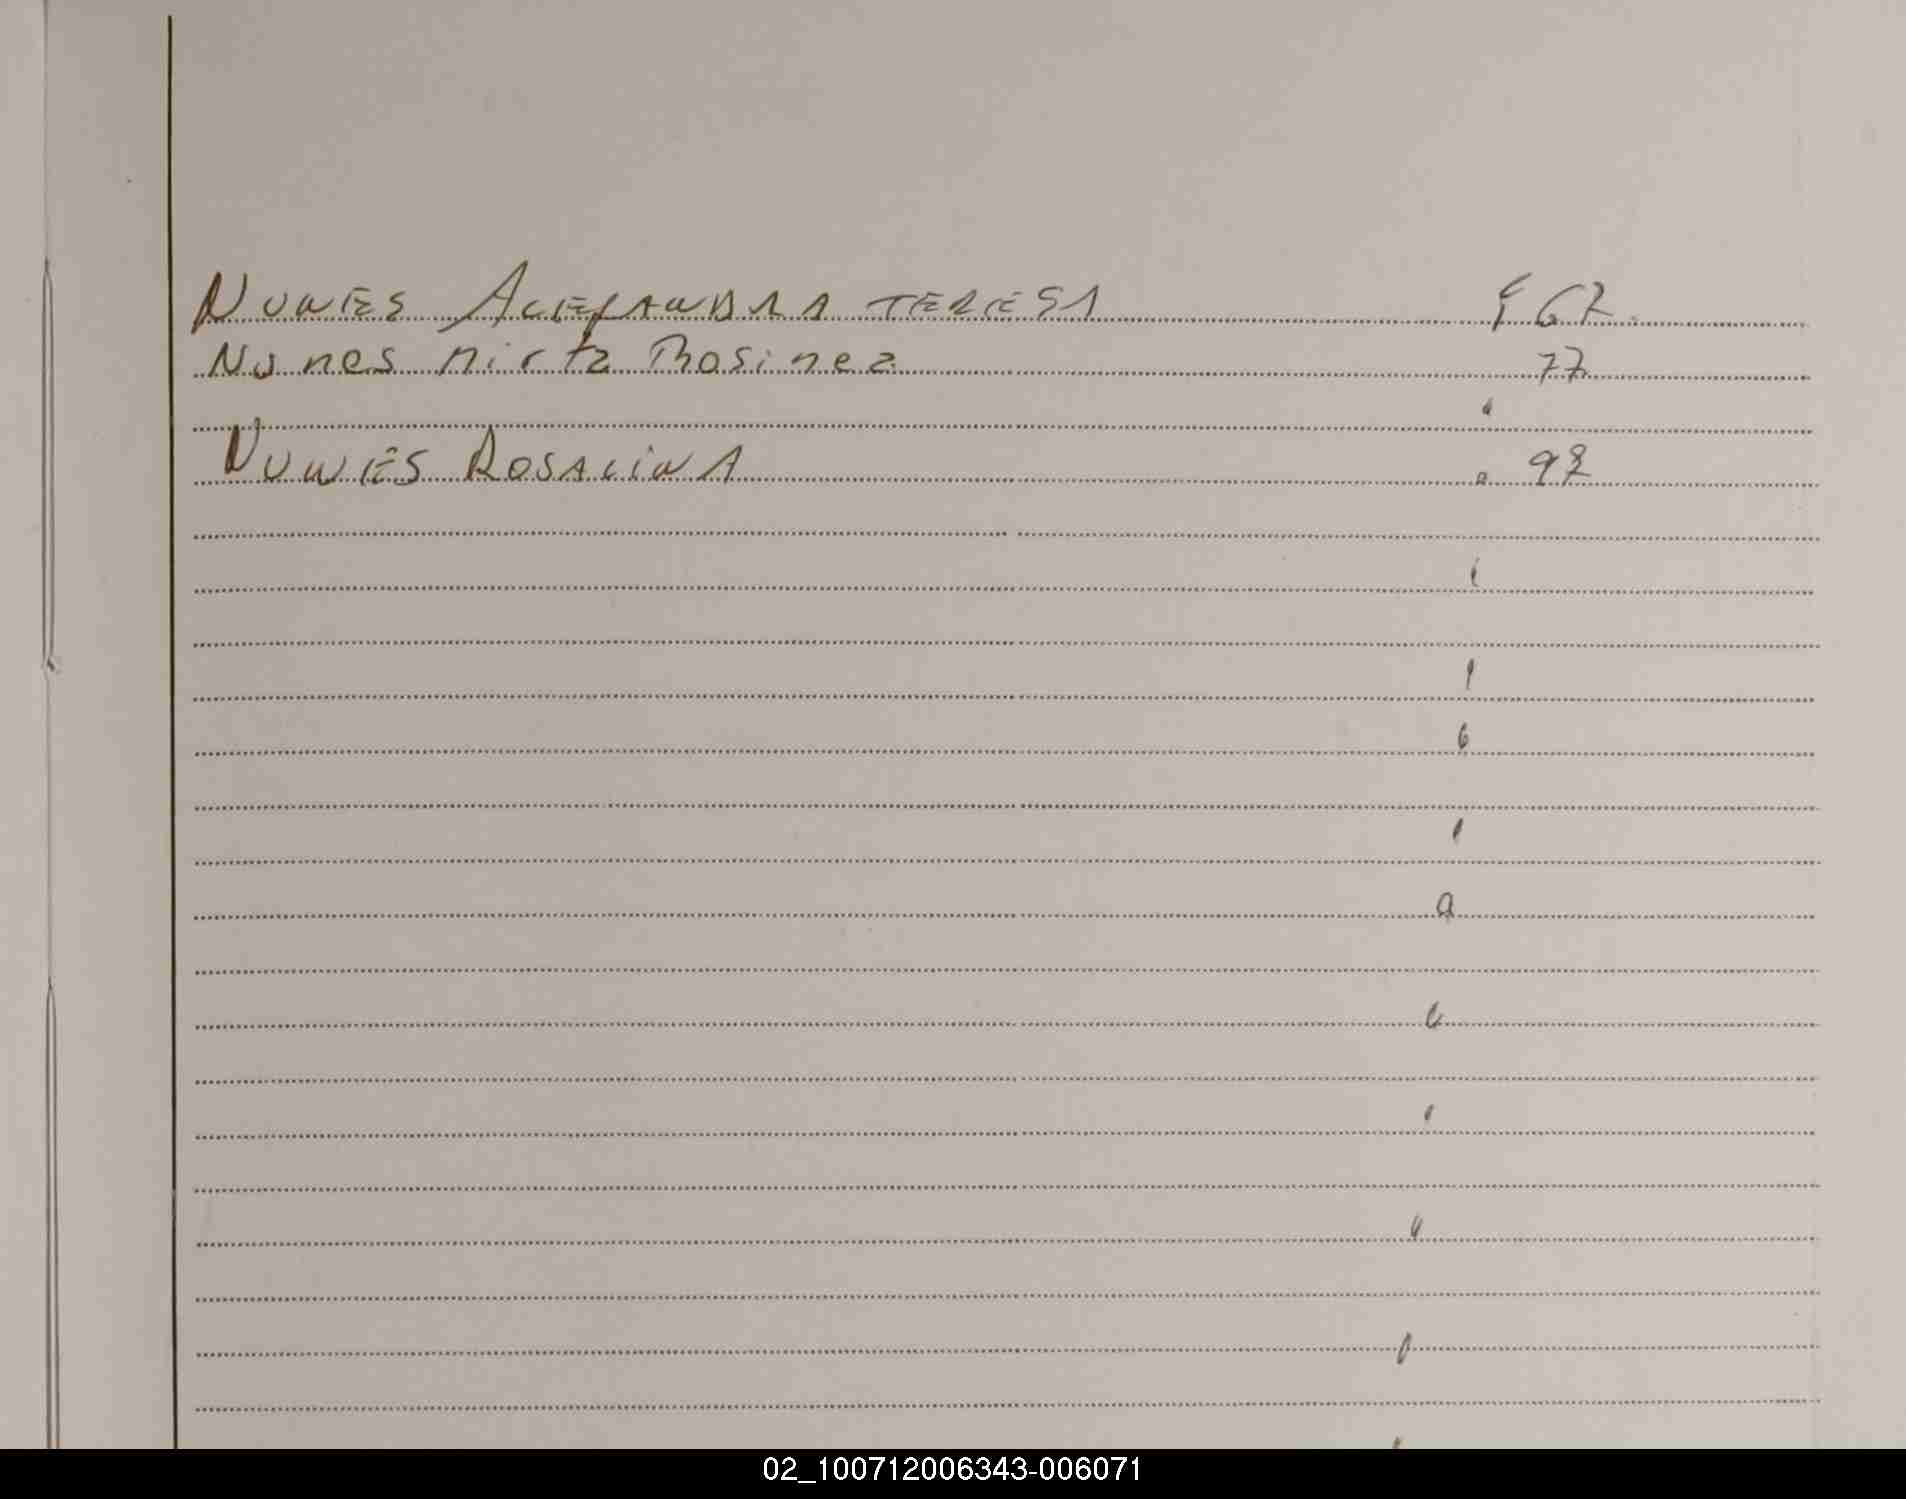 NUNES ALEJANDRA TERESA 62
Nunes Mirta Rosinea 77
NUNES ROSALINA 98
02_100712006343-006071